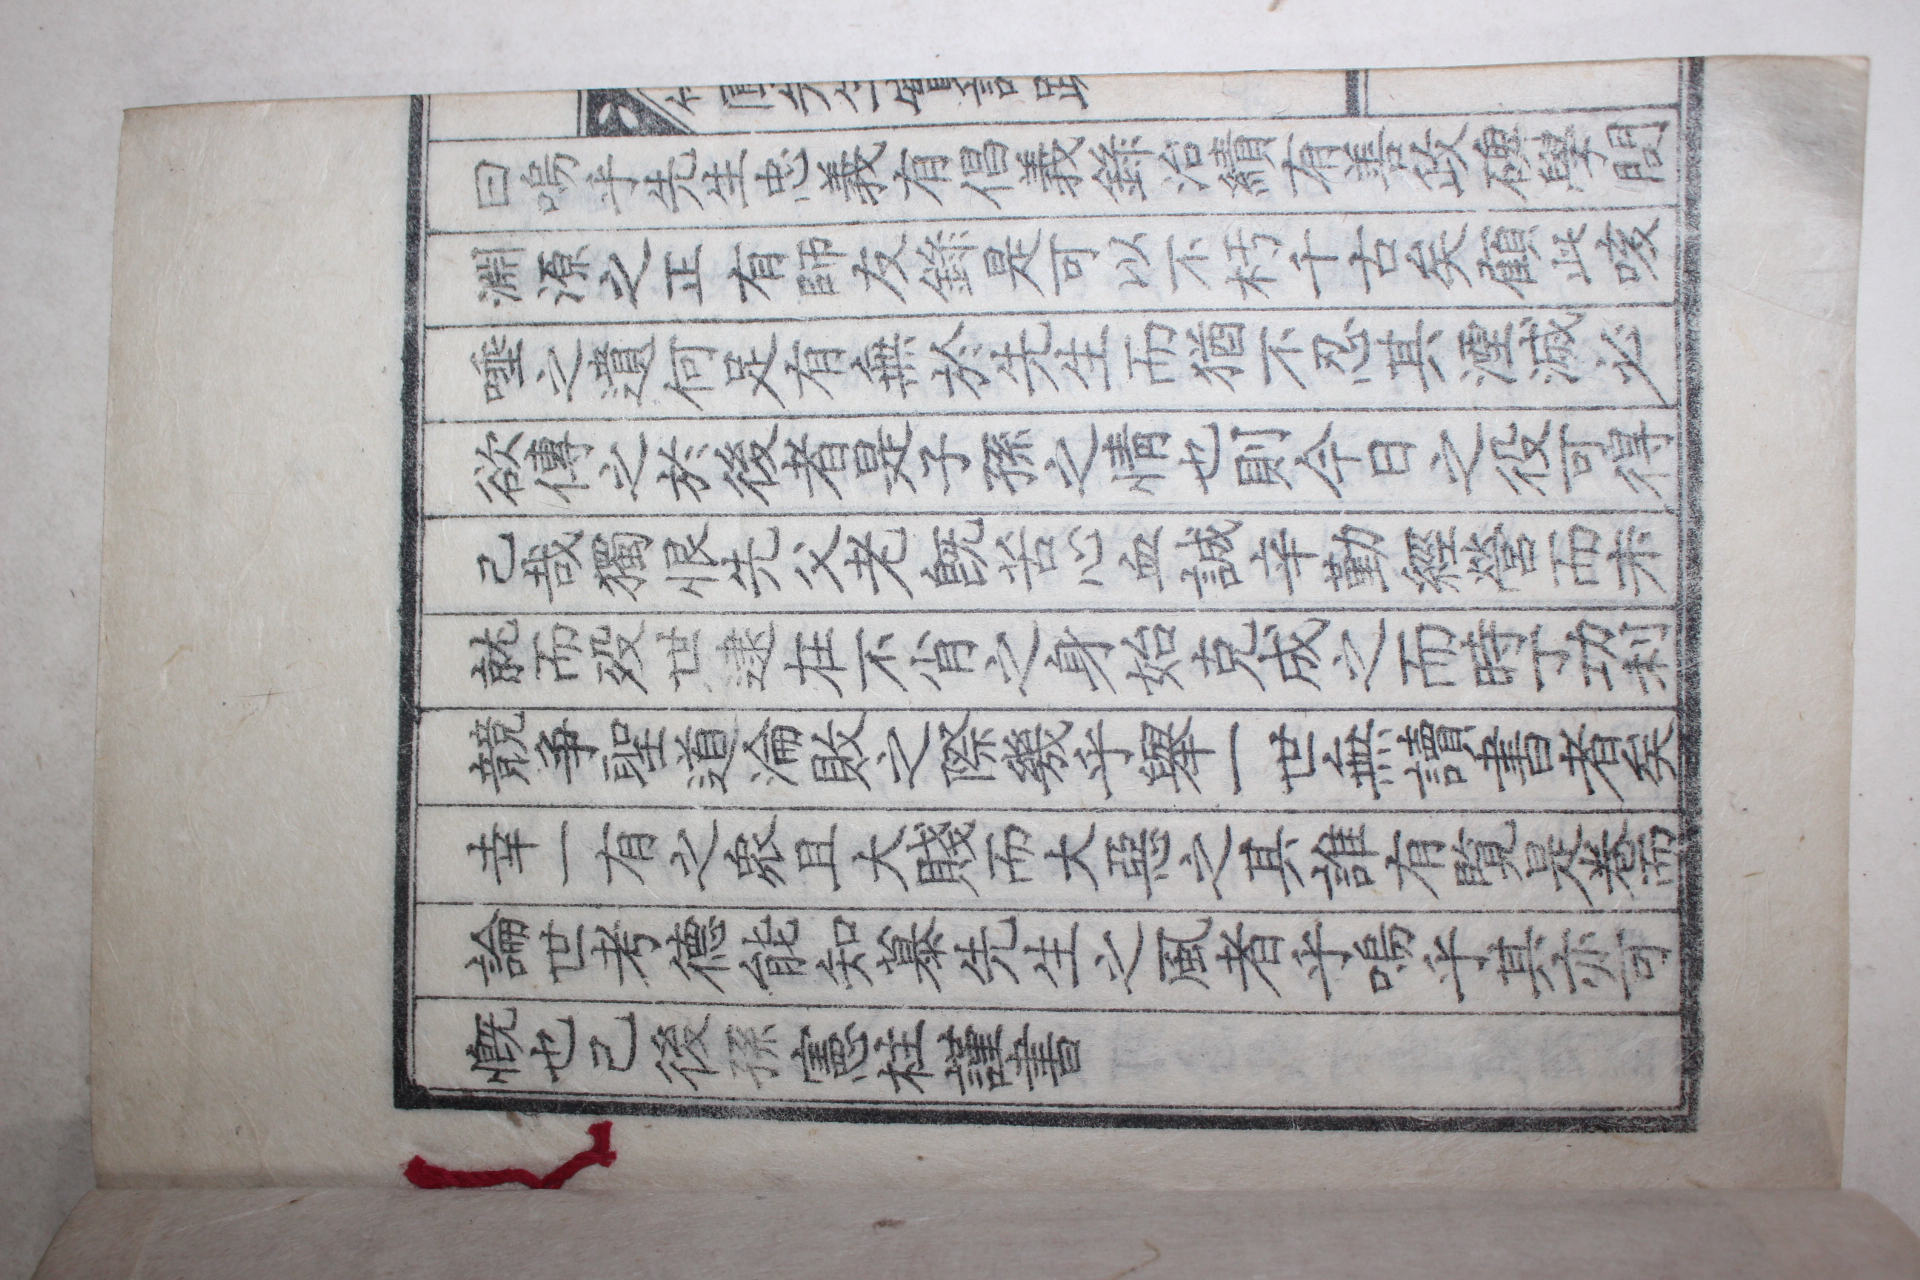 曰嗚乎先生忠義有倡義錄治績有善政碑學問
淵源之正有師友錄是可以不朽千古矣顧此咳
唾之遺何足有無於先生而猶不忍其湮滅必
欲傳之於後者是子孫之情也則今日之役可得
已哉獨恨先父老旣苦心血誠辛勤經營而未
就而歿世逮在不肖之身始克成之而時丁功利
競爭聖道淪敗之際幾乎擧一世無讀書者矣
幸一有之衆且大賤而大惡之其誰有覽是卷而
論世考德能知慕先生之風者乎嗚乎其亦可
慨也已後孫憲柱謹書